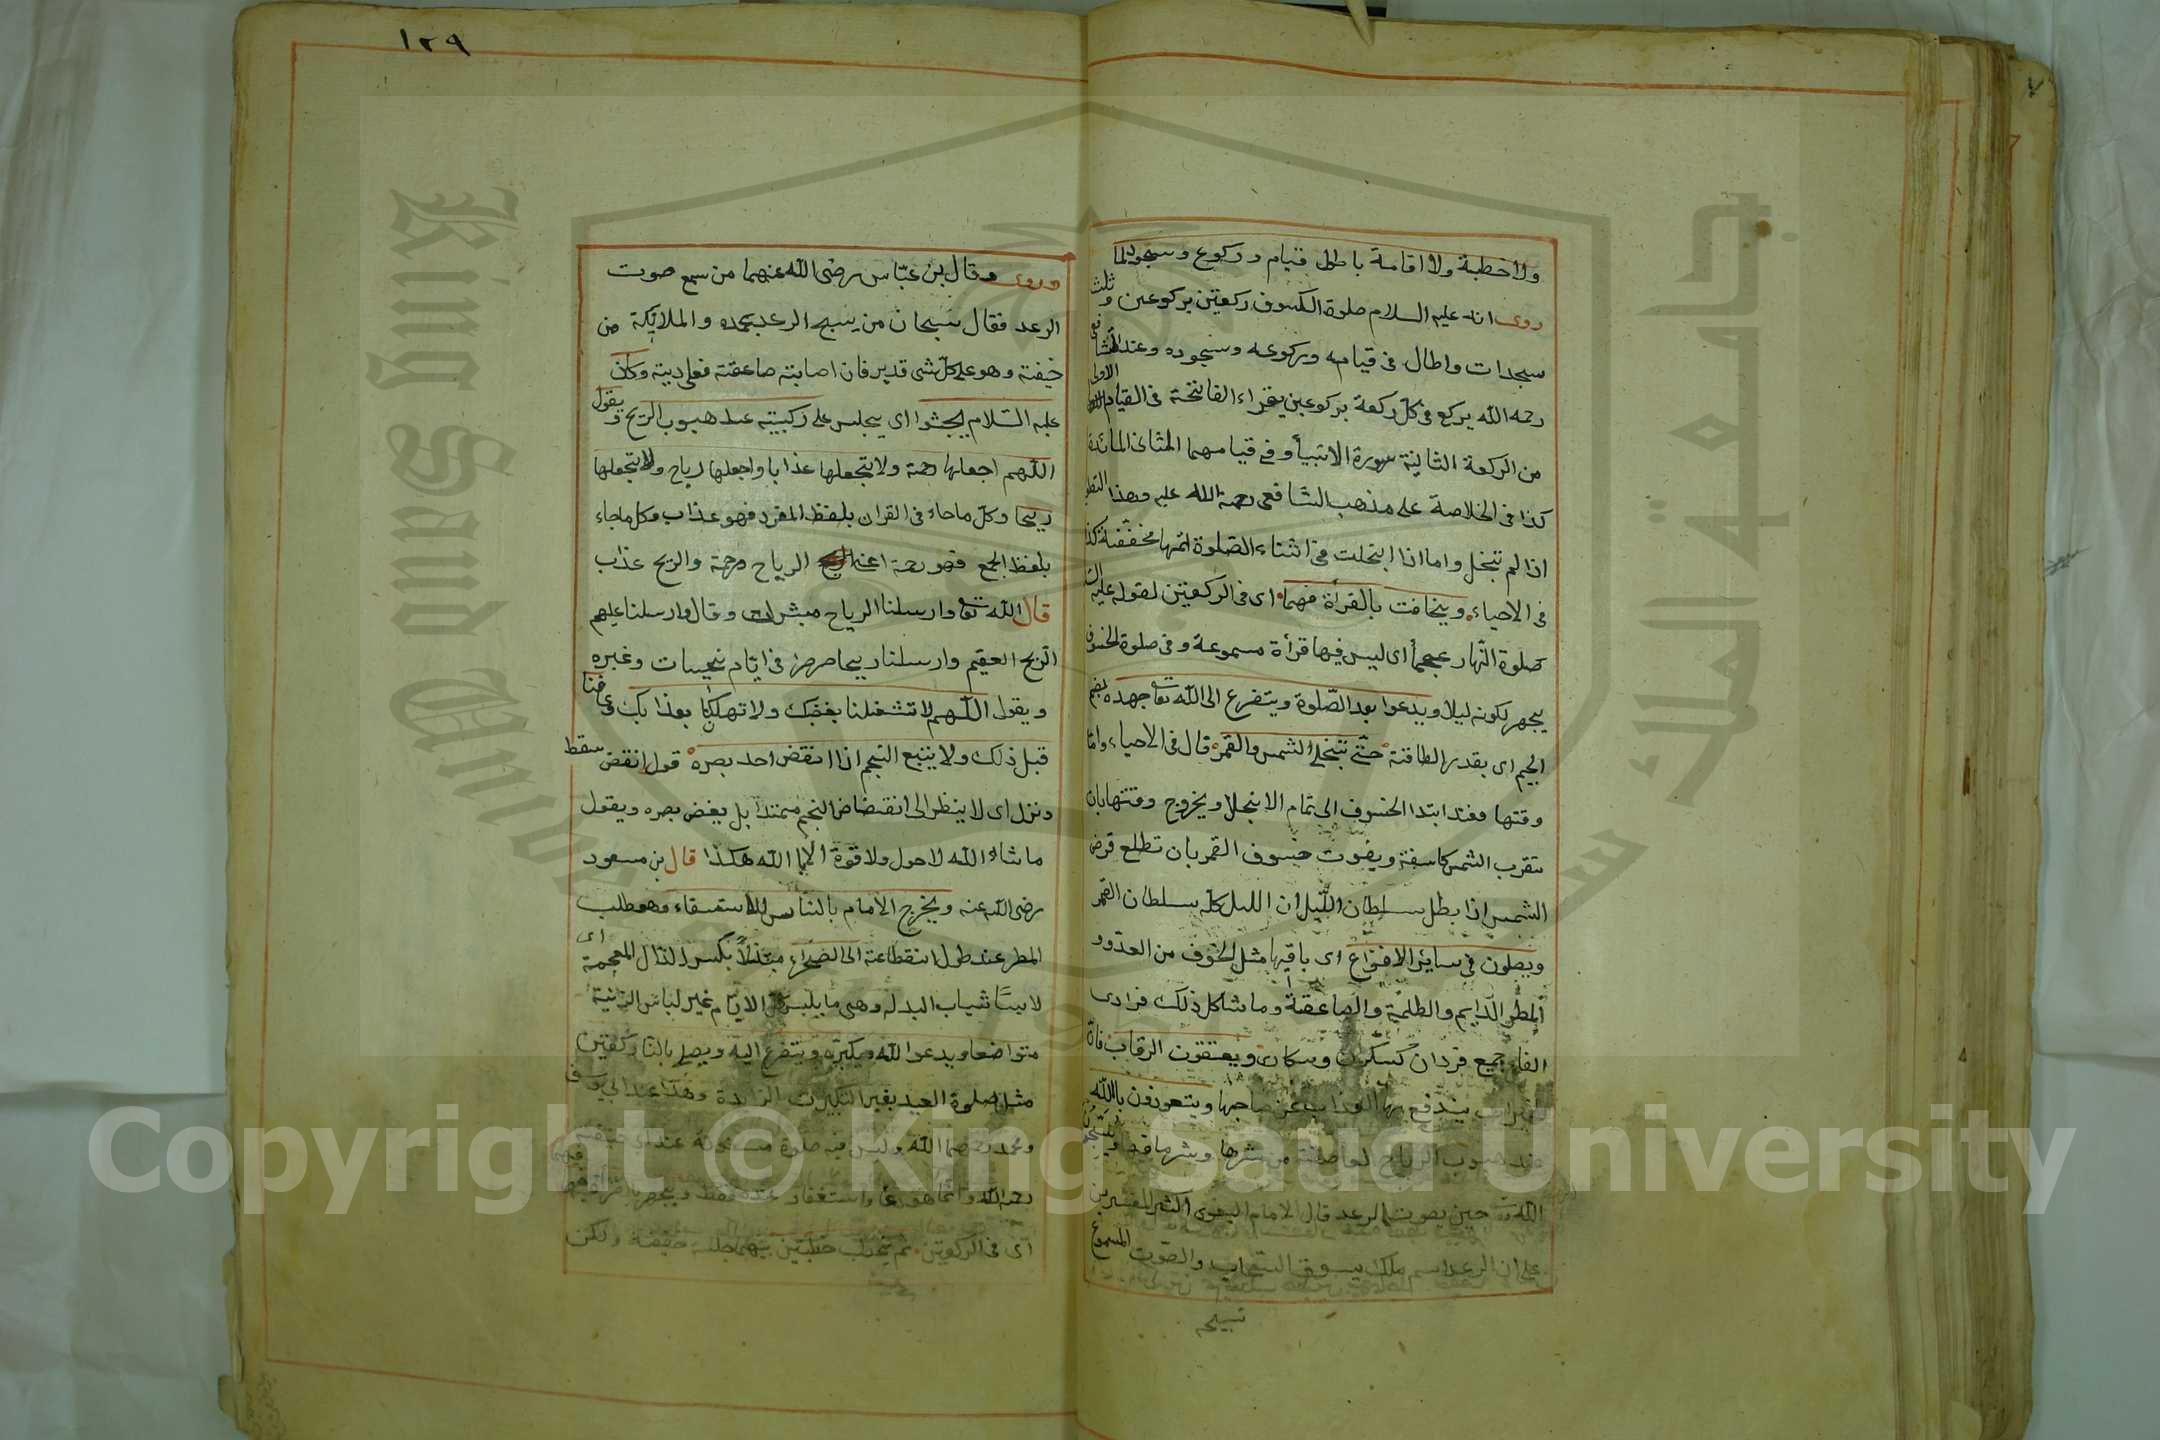 ١٢٩
ولا خطبة ولا اقامة باطول قيام وركوع وسجود لما
روى انه عليه السلام صلوة الكسوف ركعتين بركوعين وثلث
سجدات واطال فى قيامه وركوعه وسجوده وعند الشافعى
رحمه الله يركع فى كل ركعة بركوعين يقراء الفاتحة فى القيام الاولى
من الركعة الثانية سورة الانبيأ وفى قيامهما المثانى المائدة
كذا فى الخلاصة على مذهب الشافعى رحمة الله عليه وهذا
اذا لم تنجل واما اذا انجلت فى اثناء الصلوة اتمها مخففة كذا
فى الاحياء ويخافت بالقرأة فيهما اى فى الركعتين لقوله عليه
صلوة النهار عجمأ اى ليس فيها قرأة مسموعة وفى صلوة الخسوف
يجهر لكونه ليلا ويدعوا بعد الصلوة ويتضرع الى الله تعا جهده بضم
الجيم اى بقدر الطاقة حتى تنجلى الشمس والقمر قال فى الاحياء واما
وقتها فعند ابتدا الخسوف الى تمام الانجلا ويخروج وقتها بان
تقرب الشمس كاسفة ويفوت خسوف القمر بان تطلع قرص
الشمس اذا بطل سلطان الليل ان الليل كله سلطان القمر
ويصلون فى ساير الافزاع اى باقيها مثل الخوف من العدو و
المطر الدايم والظلمة والصاعقة وما شاكل ذلك فرادى
الفاء جميع فردان كسكرى وسكان ويعتقون الرقاب فان
يندفع بها العذاب عن صاحبها ويتعوذون بالله
عند هبوب الرياح العاصفة من شرها وشر ما
الله تعا حين يصوت الرعد قال الامام البغوى اكثر المفسرين
على ان الرعد اسم ملك يسوق السحاب والصوت المسموع
تسبيحه
وروى وقال بن عباس رضى الله عنهما من سمع صوت
الرعد فقال سبحان من يسبح الرعد بحمده والملايكة من
خيفته وهو على كل شى قدير فان اصابته صاعقة فعلى ديته وكان
عليه السلام يجثوا اى يجلس على ركبتيه عند هبوب الريح ويقول
اللهم اجعلها رحمة ولا تجعلها عذابا واجعلها رياح ولا تجعلها
ريحا وكل ماجاء فى القران بلفظ المفرد فهو عذاب وكل ماجاء
بلفظ الجمع فهو رحمة اعنى الرياح رحمة والريح عذاب
قال الله تعا وارسلنا الرياح مبشرات وقال وارسلنا عليهم
الريح العقيم وارسلنا ريحا صرصر فى ايام نحيسات وغيره
ويقول اللهم لا تقتلنا بغضبك ولا تهلكنا بعذابك وعافنا
قبل ذلك ولا يتبع النجم اذا انقض احد بصره قول انقض سقط
ونزل اى لا ينظر الى انقضاض النجم ممتدا بل يغض بصره ويقول
ما شاء الله لا حول ولا قوة الا بالله هكذا قال بن مسعود
رضى الله عنه ويخرج الامام بالناس للاستسقاء وهو طلب
المطر عند طول انقطاعه الى الصحراء مبتذلا بكسر الذال المعجمة اى
لابسا ثياب البدلة وهى ما يلبس كل الايام غير لباس الزينة
متواضعا ويدعوا الله ويكبره ويتضرع اليه ويصلى بالنا ركعتين
مثل صلوة العيد بغير التكبيرات الزايدة وهذا عند ابى يوسف
ومحمد رحمهما الله وليس فيه صلوة مسنونة عند ابى حنيفة
رحمه الله وانما هو دعا واستغفار عنده فقط ويجهر بالقراة فيهما
اى فى الركعتين ثم يخطب خطبتين بينهما جلسة خفيفة ولكن
Copyright © King Saud University
King Saud University
جامعة الملك سعود